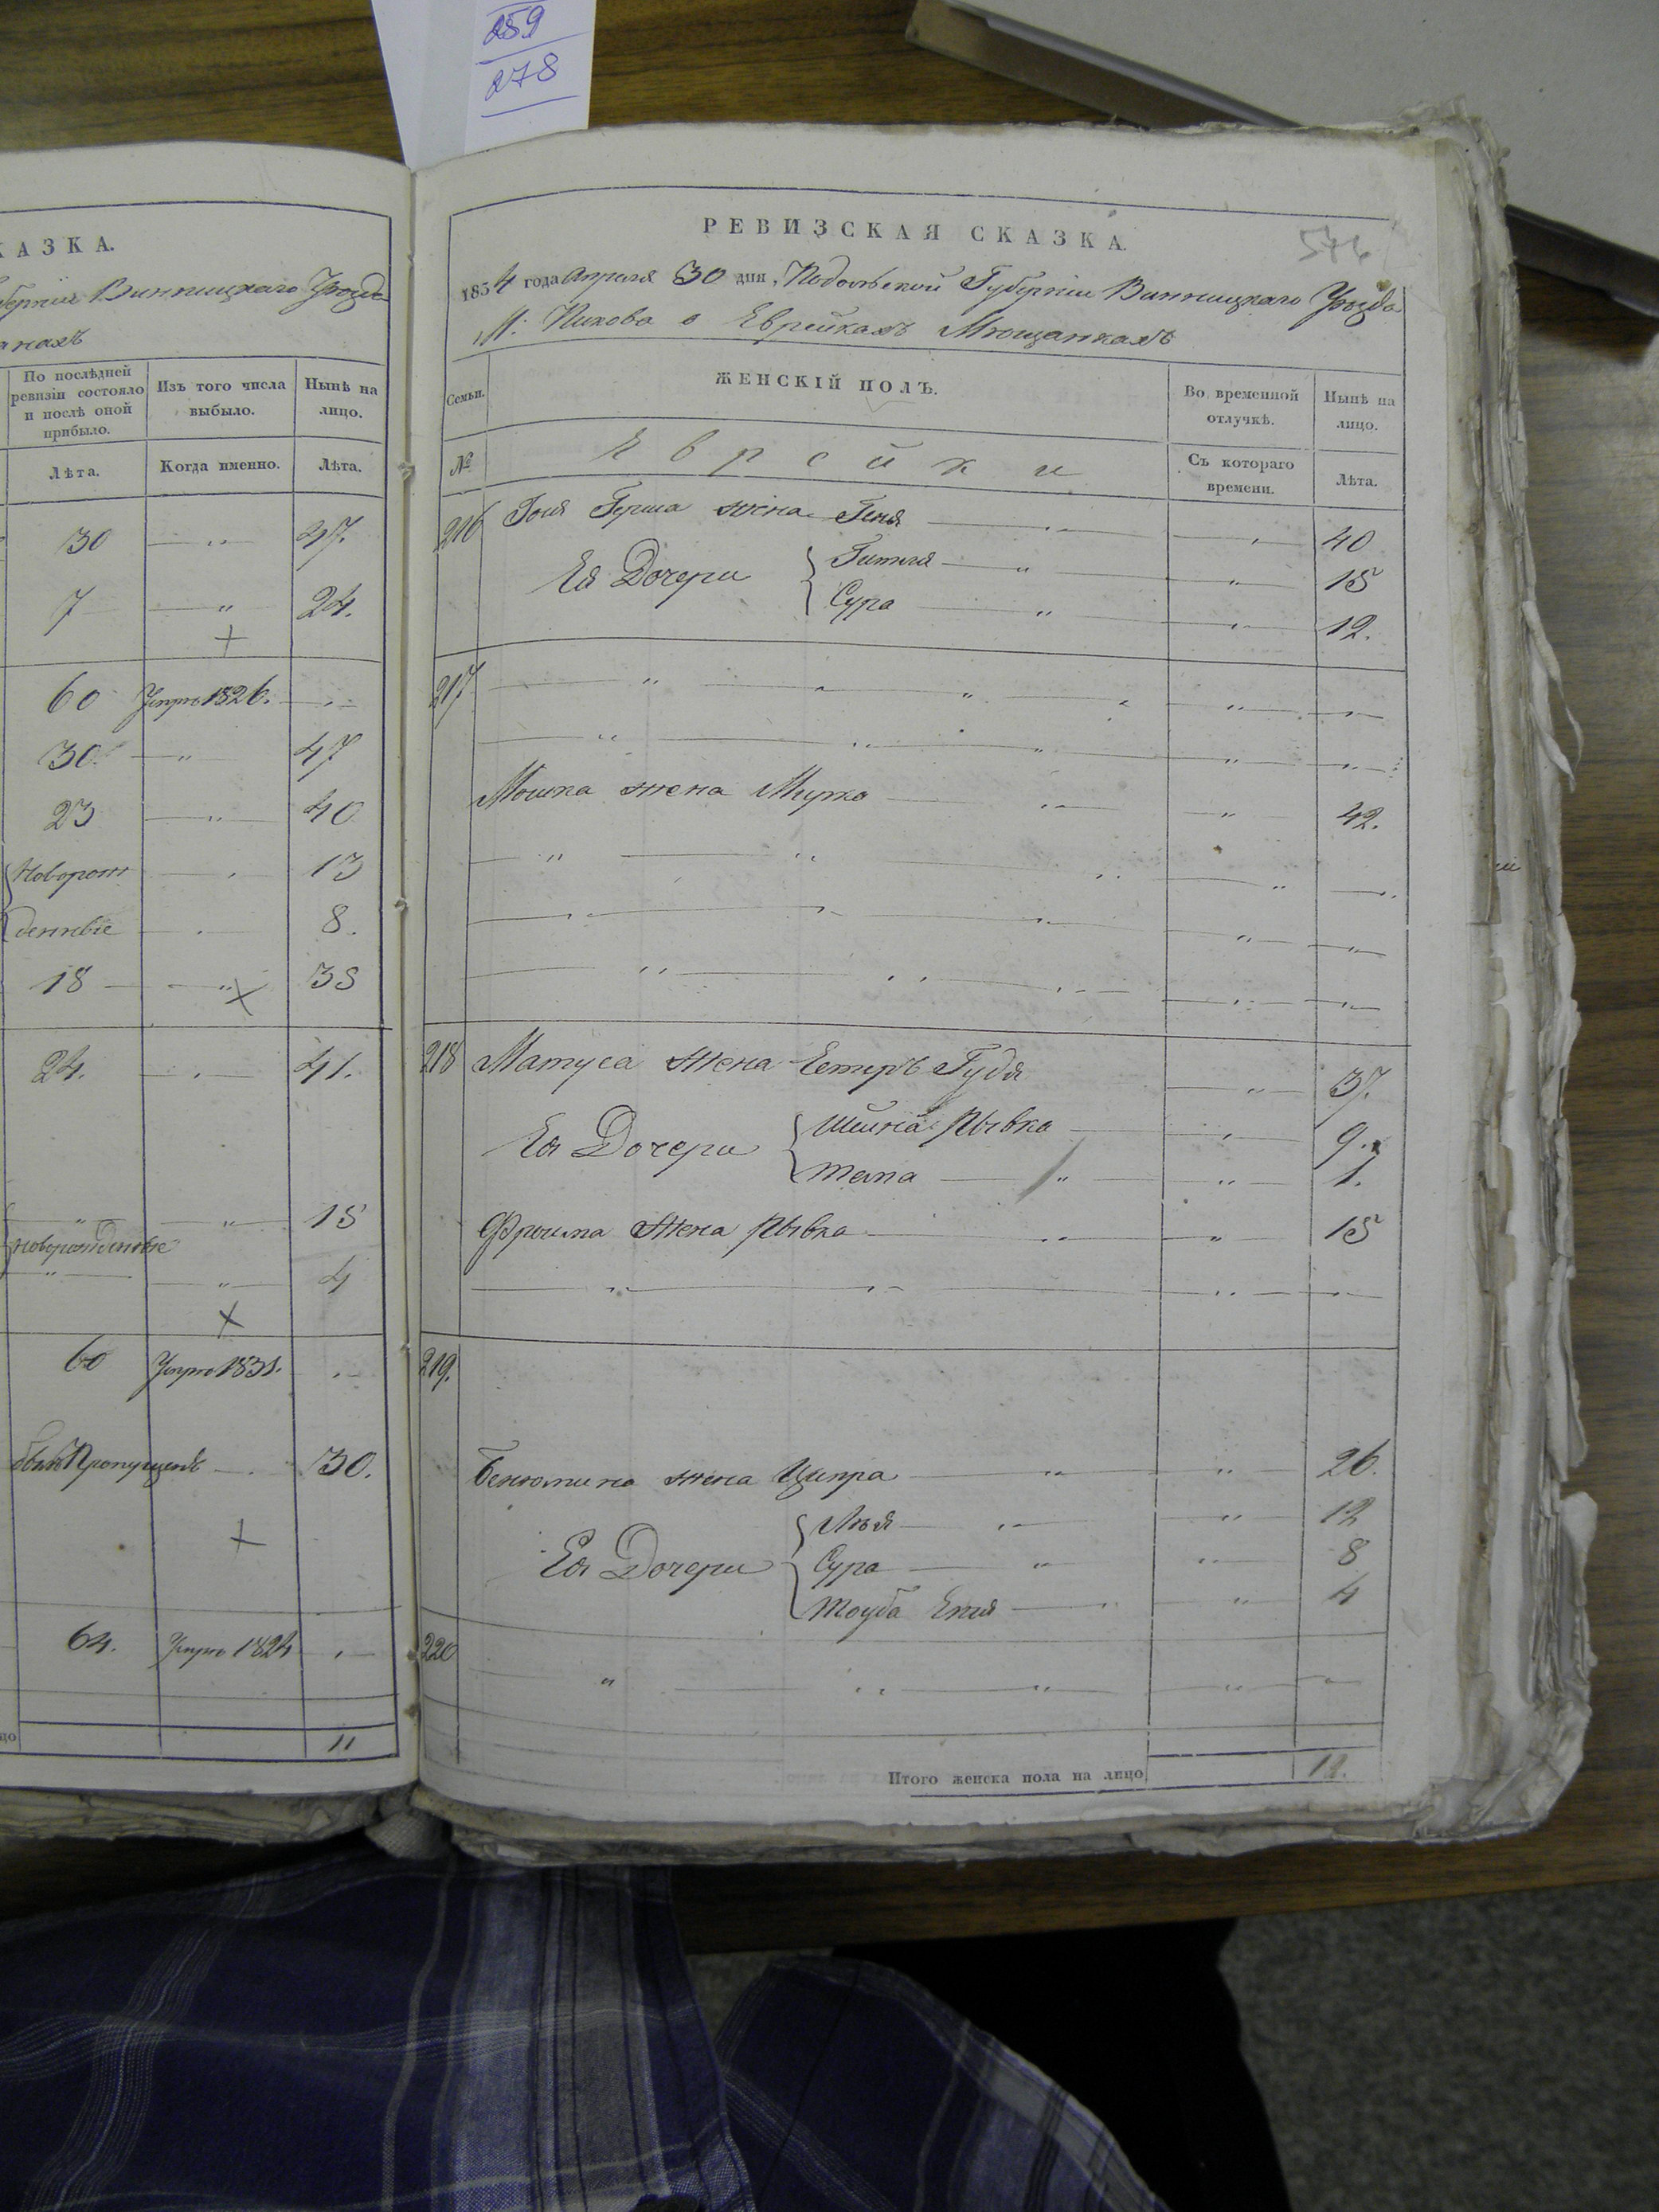 259
278
КАЗКА.
Винницкаго Уѣзда
По послѣдней ревизіи состояло и послѣ оной прибыло.
Изъ того числа выбыло.
Нынѣ на лицо.
Лѣта.
Когда именно.
Лѣта.
30 — „ — 47.
7 — „ — 24.
60 Умре 1826. — „ —
30. — „ — 47
23 — „ — 40
Новорож — „ — 13
денные — „ — 8.
18 — „ — 35
24. — „ — 41.
— „ — — „ — 15
новорожденные
— „ — — „ — 4
60 Умре 1831. „ —
Пропущенъ — 30.
64. Умре 1824 „ —
11
576
РЕВИЗСКАЯ СКАЗКА.
1834 года Апреля 30 дня, Подольской Губерніи Винницкаго Уѣзда
М: Пикова о Еврейкахъ Мѣщанкахъ
Семьи.
ЖЕНСКІЙ ПОЛЪ.
Во временной отлучкѣ.
Нынѣ на лицо.
№
Еврейки
Съ котораго времени.
Лѣта.
216 Герша жена Геня — „ — 40
Ея Дочери { Гитля — „ — 15
Сура — „ — 12.
217 — „ —
Мошка жена — „ — 42.
218 Матуса жена Естеръ Гудя — „ — 37.
Ея Дочери { Рывка — „ — 9.
— „ — 1.
Фроима жена Рывка — „ — 15
219.
Бенюмина жена Ципра — „ — 26.
Ея Дочери { Лѣя — „ — 12
Сура — „ — 8
Тоуба — „ — 4
220 „ — „ — „
Итого женска пола на лицо 12.